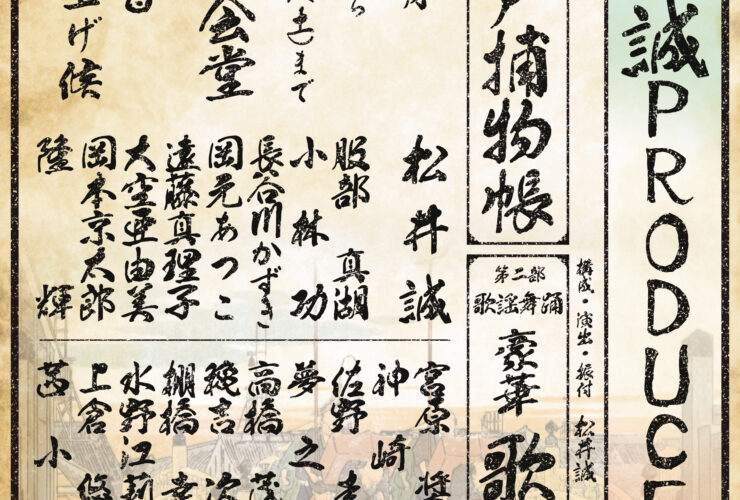 誠PRODUCE
構成・演出・振付 松井誠
捕物帳
第二部
歌謡舞踊
豪華 歌
松井誠
服部 真湖
小林 功
長谷川かずき
岡元あつこ
遠藤真理子
大空亜由美
岡本京太郎
隆 輝
宮原 奨
神崎
佐野
夢之
高橋 茂
幾吉 次
棚橋 幸
水野江莉
上倉 悠
小
まで
会堂
上げ候